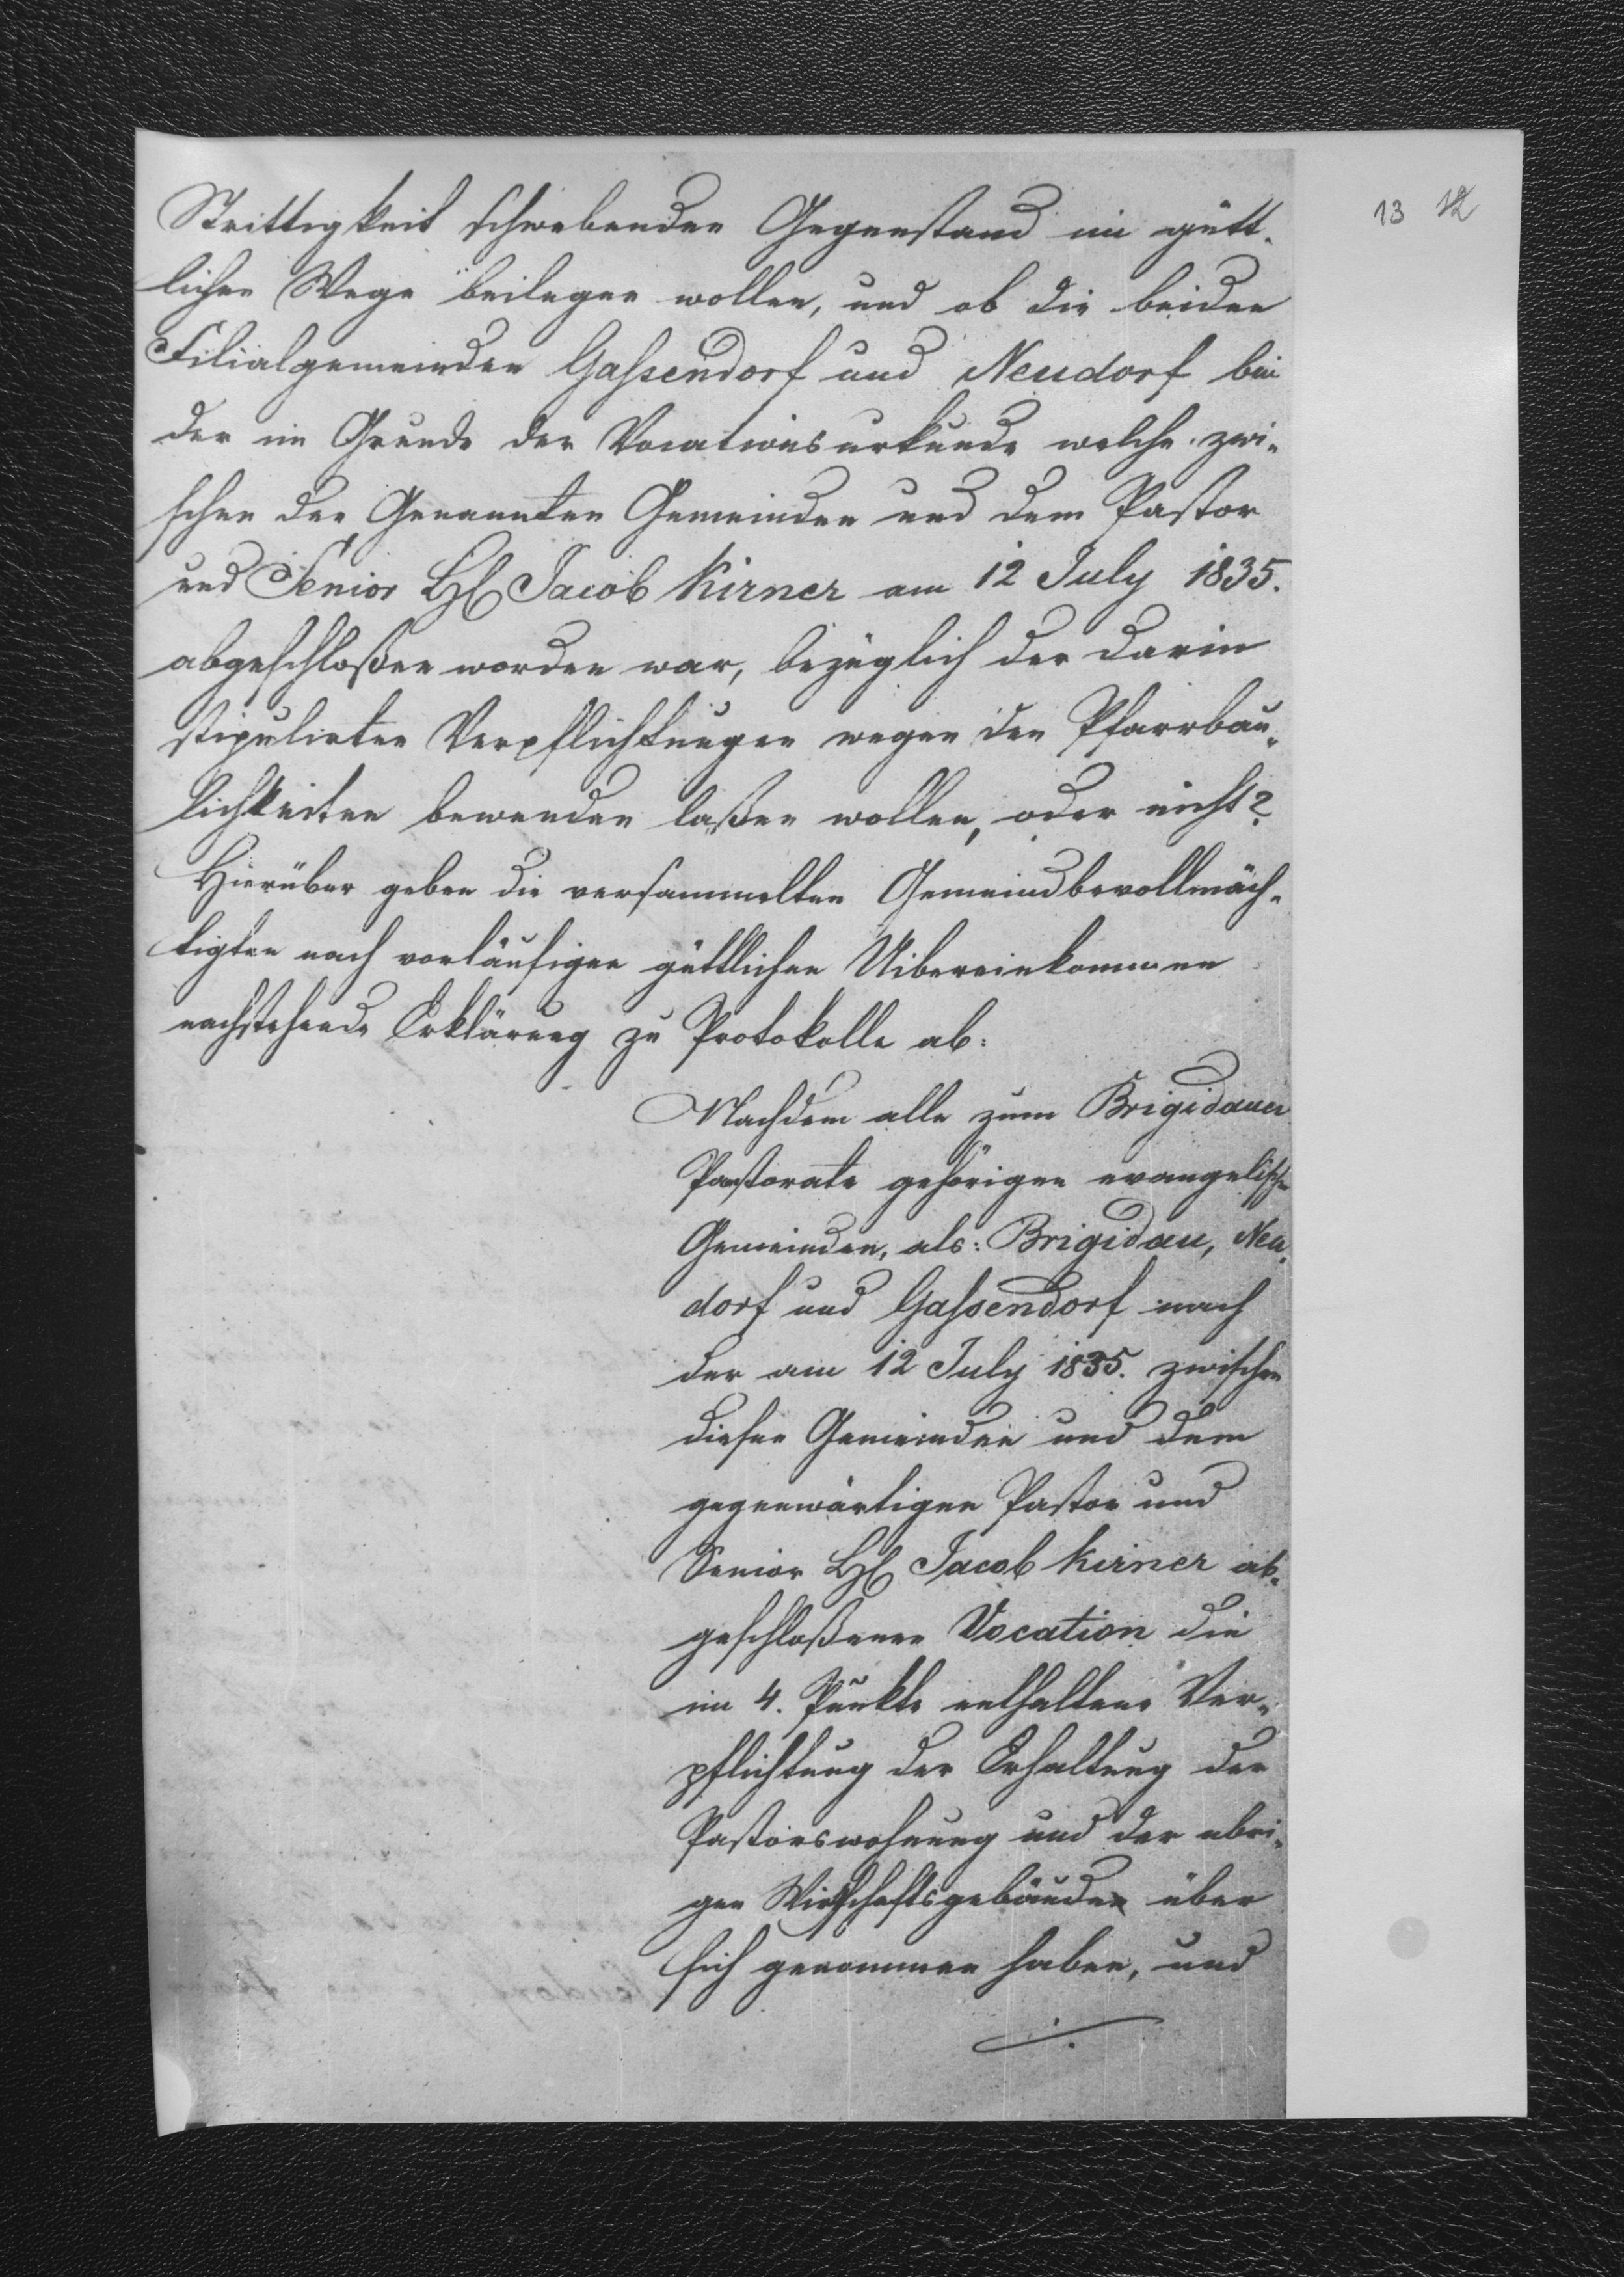 13 12
Strittigkeit schwebenden Gegenstand im gütt-
lichen Wege beilegen wollen, und ob die beiden
Filialgemeinden Gaßendorf und Neudorf bei
der im Grunde der Vocationsurkunde welche zwi-
schen den Genannten Gemeinden und dem Pastor
und Senior H. Jacob Kirner am 12 July 1835.
abgeschloßen worden war, bezüglich der darin
stipulirten Verpflichtungen wegen den Pfarrbau-
lichkeiten bewenden laßen wollen, oder nicht?
Hierüber geben die versammelten Gemeindbevollmäch-
tigten nach vorläufigen güttlichen Uibereinkommen
nachstehende Erklärung zu Protokolle ab:
Nachdem alle zum Brigidauer
Pastorate gehörigen evangelischen
Gemeinden, als: Brigidau, Neu-
dorf und Gaßendorf nach
der am 12 July 1835. zwischen
diesen Gemeinden und dem
gegenwärtigen Pastor und
Senior H. Jacob Kirner ab-
geschloßenen Vocation die
im 4. Punkte enthaltene Ver-
pflichtung der Erhaltung der
Pastorswohnung und der ubri-
gen Wirthschaftsgebäuden über
sich genommen haben, und
./.